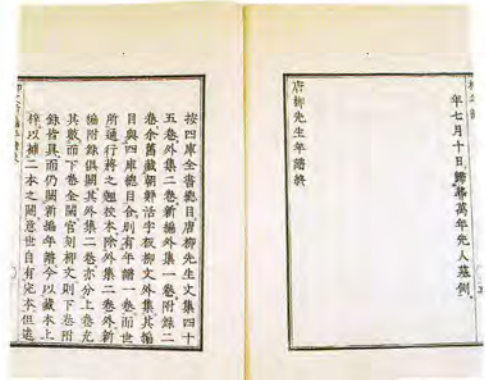 年七月十日歸葬萬年先人墓側
唐柳先生年譜終
按四庫全書總目唐柳先生文集四十
五卷外集二卷新編外集一卷附錄二
卷余舊藏朝鮮活字板柳文外集其編
目與四庫總目合別有年譜一卷而世
所通行蔣之翹校本除外集二卷外新
編附錄俱闕其外集二卷亦分上卷充
其數而下卷全闕官刻柳文則下卷附
錄皆具而仍闕新編年譜今以藏本上
梓以補二本之闕意世自有定本但遠